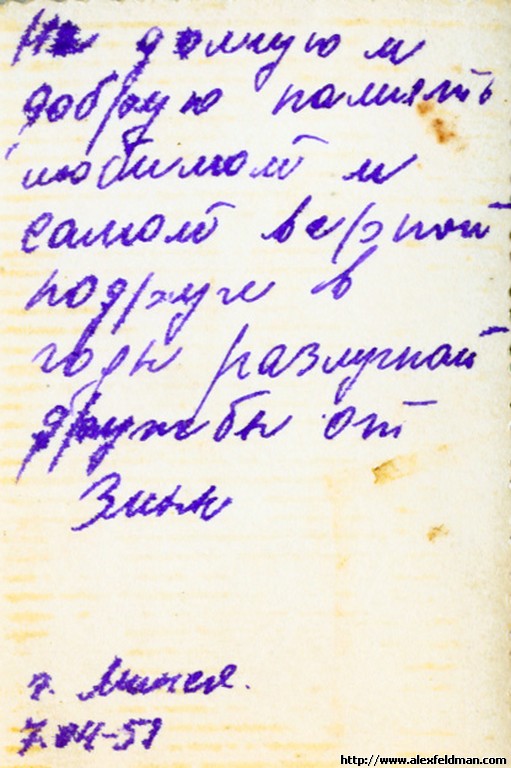 На долгую и
добрую память
любимой и
самой верной
подруге в
годы разлучной
дружбы от
Зины
г. Минск.
7.04-51
http://www.alexfeldman.com